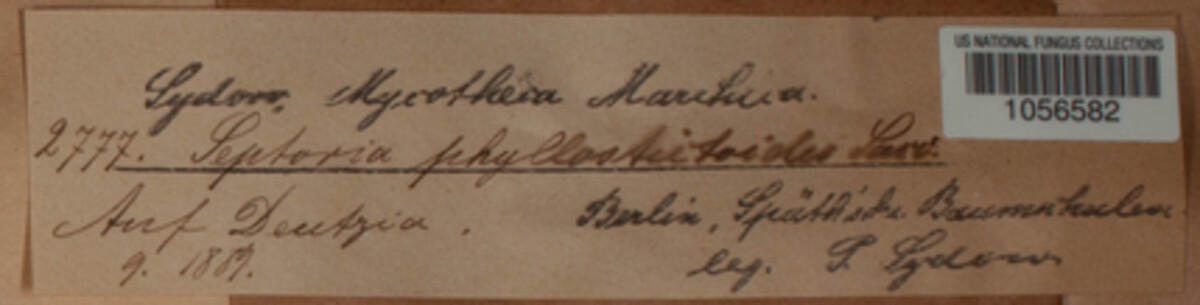 US NATIONAL FUNGUS COLLECTIONS
1056582
Sydow, Mycotheca Marchica.
2777. Septoria phyllostictoides Sacc.
Auf Deutzia. Berlin, Späth'sche Baumschulen
9. 1889. leg. P Sydow